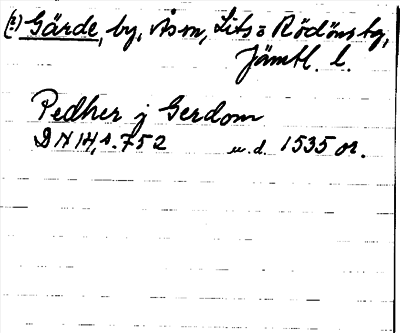 (2) Gärde, by, Ås sn, Lits o Rödöns tg,
Jämtl. l.
Pedher j Gerdom
DN 14, s. 752 u.d. 1535 or.